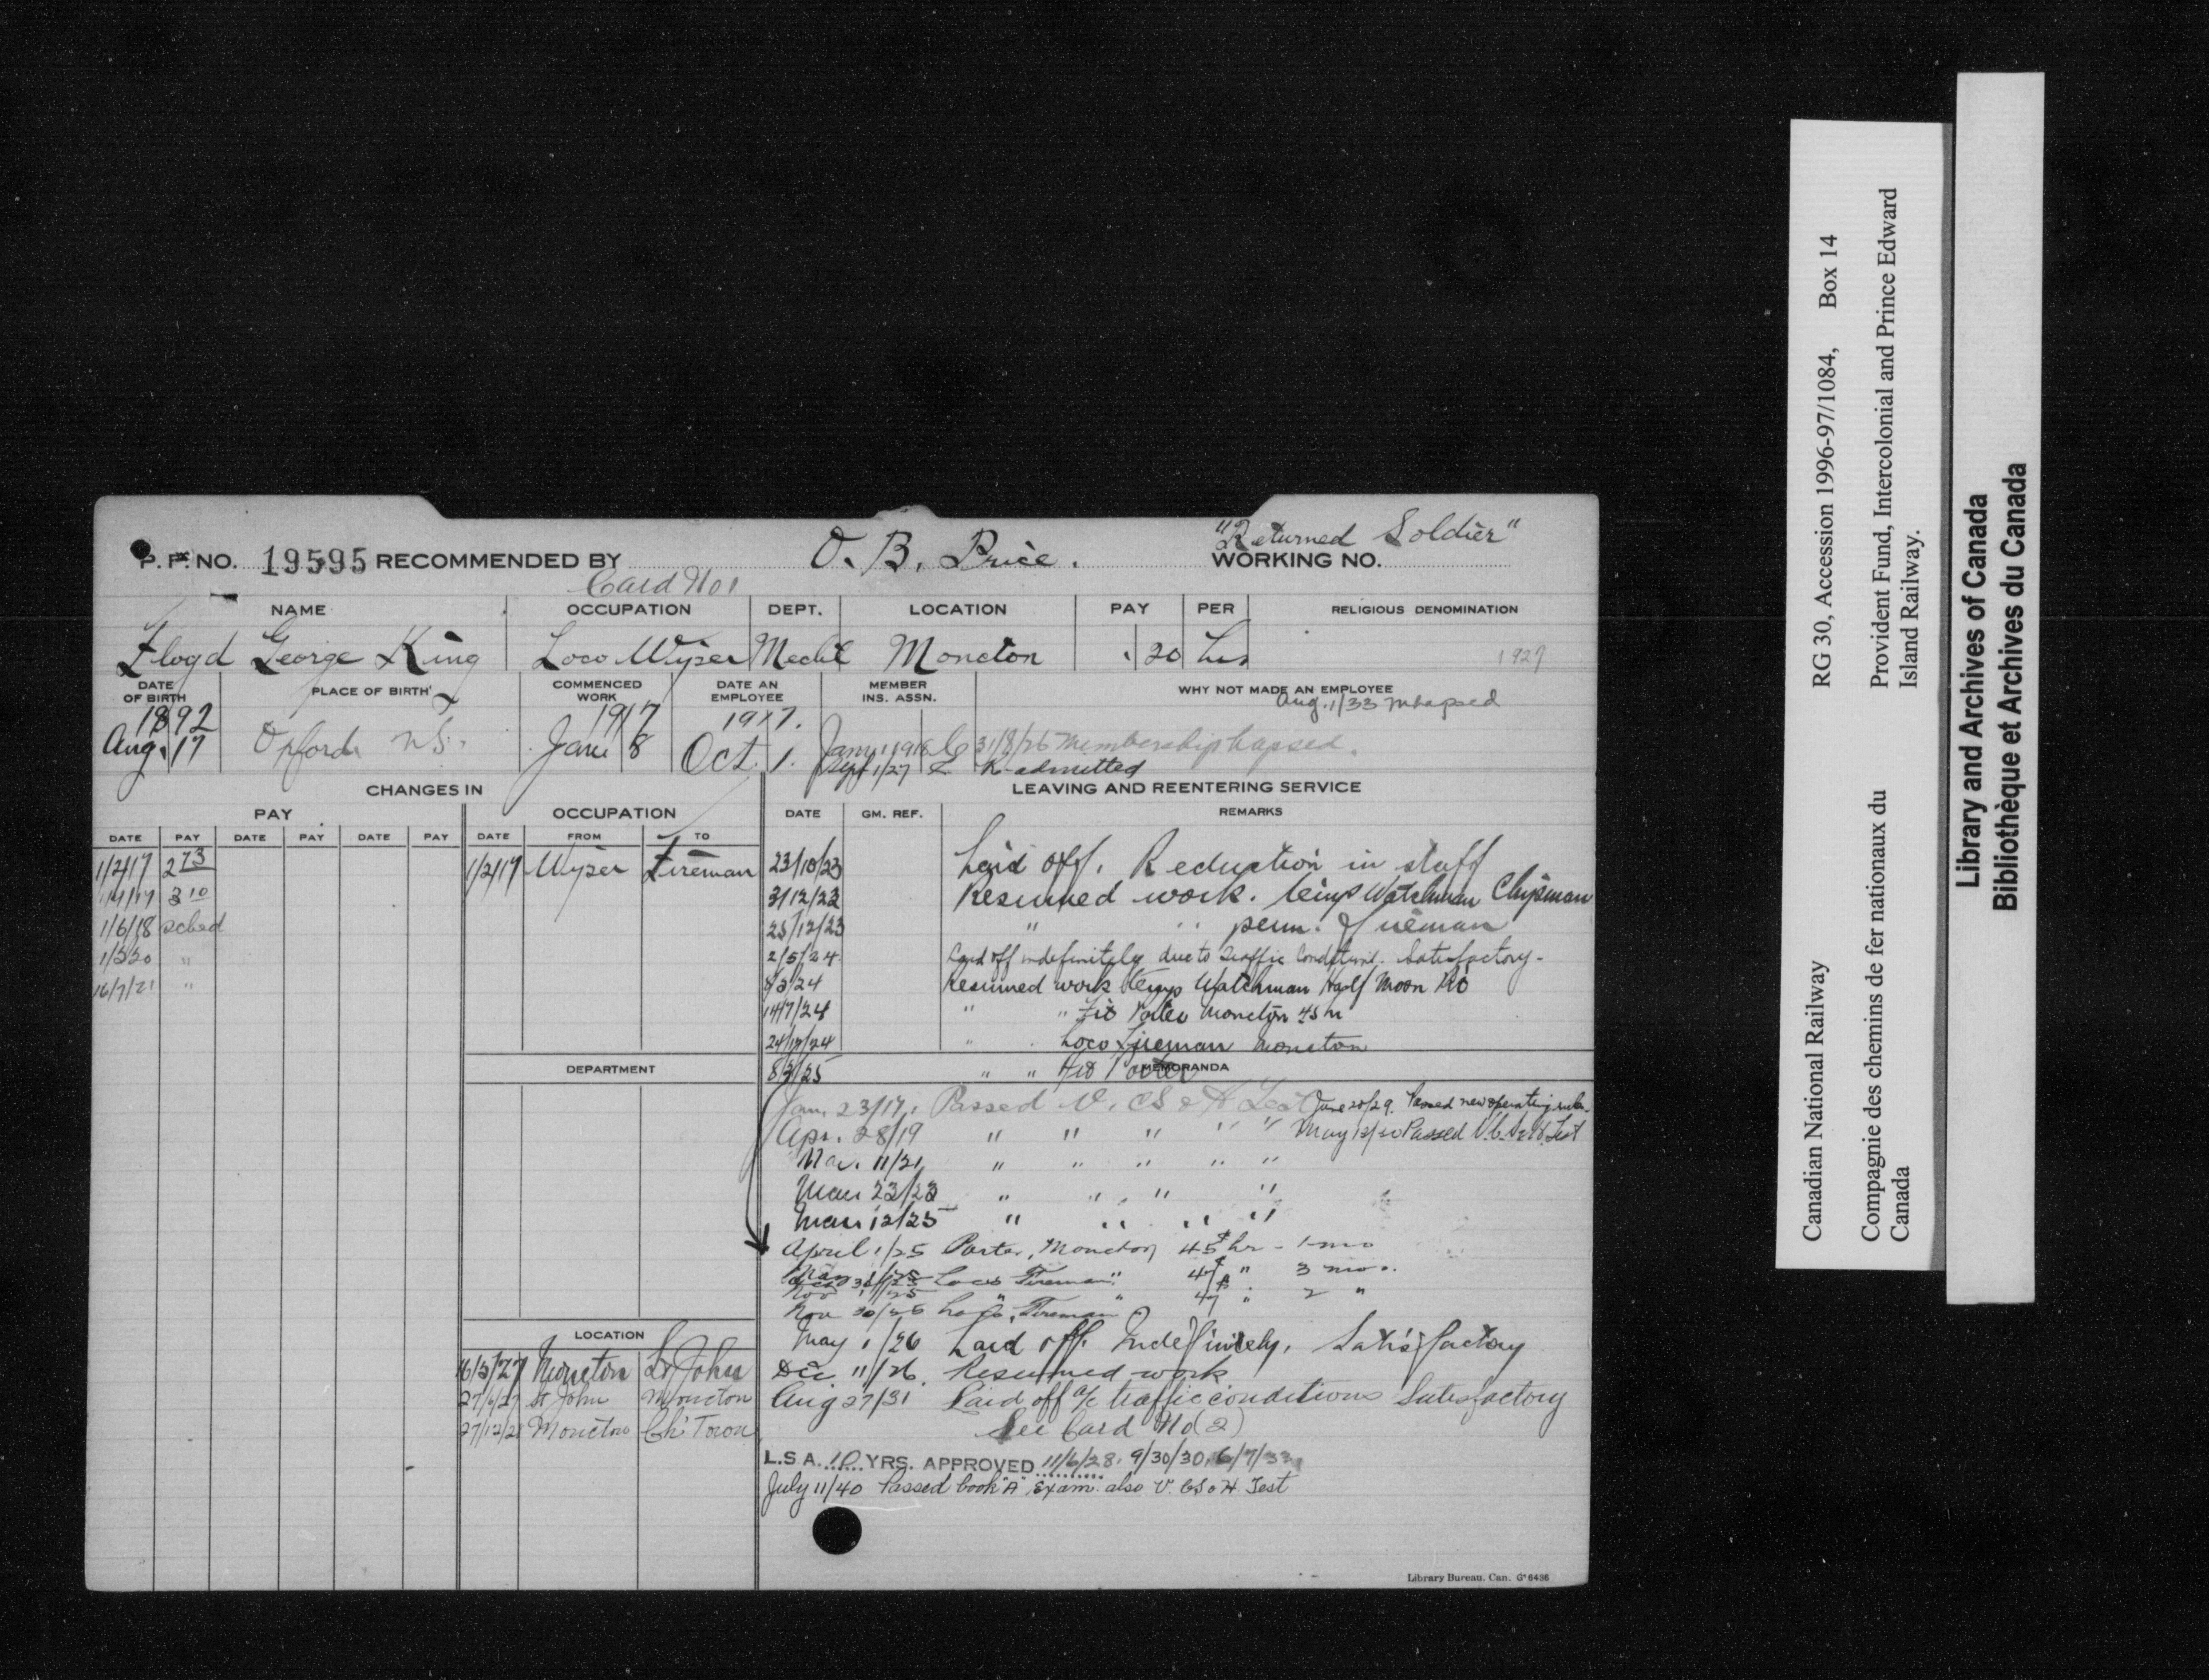 "Returned Soldier"
P. F. NO. 19595 RECOMMENDED BY O. B. Price. WORKING NO.
Card No 1
NAME OCCUPATION DEPT. LOCATION PAY PER RELIGIOUS DENOMINATION
Floyd George King Loco Wiper Mechl Moncton .20 hrs 1927
DATE OF BIRTH PLACE OF BIRTH COMMENCED WORK DATE AN EMPLOYEE MEMBER INS. ASSN. WHY NOT MADE AN EMPLOYEE
Aug. 1/33
1892 1917 1917.
Aug. 17 Oxford N.S. Jan 8 Oct. 1. Jany 1/1918 C 31/8/26 Membership lapsed.
Sept 1/27 Re-admitted
CHANGES IN LEAVING AND REENTERING SERVICE
PAY OCCUPATION DATE GM. REF. REMARKS
DATE PAY DATE PAY DATE PAY DATE FROM TO
1/2/17 2 73 1/2/17 Wiper Fireman 23/10/23 Laid off. Reduction in staff
3 10 3/12/23 Resumed work. temp Watchman Chipman
1/6/18 sched 25/12/23 " " perm. Fireman
" 2/5/24 Laid off indefinitely due to traffic conditions. Satisfactory-
16/7/21 " Resumed work temp Watchman Half Moon
14/7/24 " " Porter Moncton 45 hr
" Loco Fireman Moncton
DEPARTMENT MEMORANDA
8/3/25 " " Porter
Jan. 23/17. Passed V. CS & H Test June 20/29. Passed new operating rules.
Apr. 28/19 " " " " " Passed V.C.S & H. Test
Mar. 11/21 " " " " "
Mar 23/23 " " " "
Mar. 12/25 " " " "
April 1/25 Porter, Moncton 45¢ hr - 1 mo
Loco Fireman " 47¢ " 3 mo.
47 " 2 "
Nov 30/25 Loco. Fireman
LOCATION
May 1/26 Laid off. Indefinitely. Satisfactory
16/5/27 Moncton St John Dec 11/26. Resumed work
27/6/27 St John Moncton Aug 27/31 Laid off a/c traffic conditions Satisfactory
Moncton Ch'Town See Card No (2)
L.S.A. 10 YRS. APPROVED 11/6/28. 9/30/30.
July 11/40 Passed book "A" Exam. also V. CS & H Test
Library Bureau. Can. G 6436
Canadian National Railway RG 30, Accession 1996-97/1084, Box 14
Compagnie des chemins de fer nationaux du Canada
Provident Fund, Intercolonial and Prince Edward Island Railway.
Library and Archives of Canada
Bibliothèque et Archives du Canada